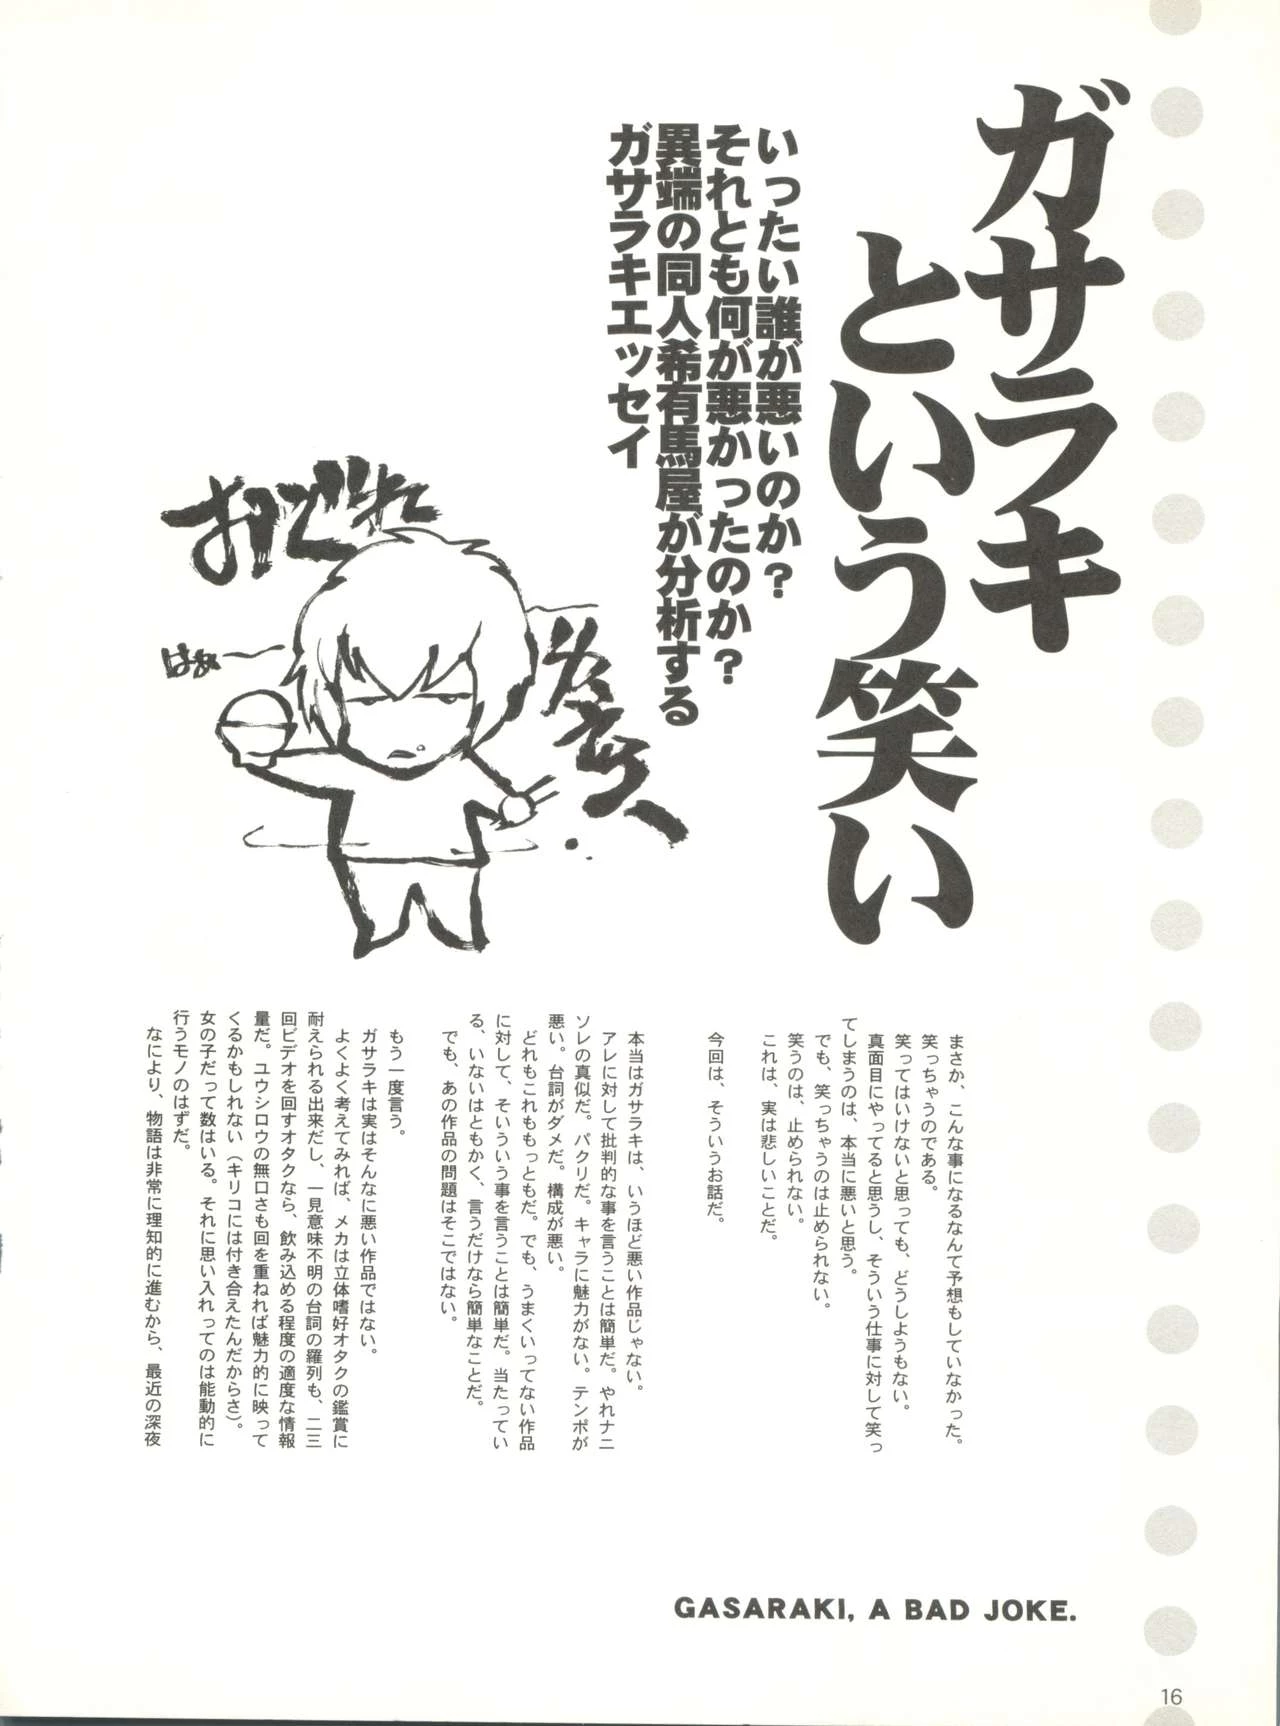 ガサラキ
という笑い
いったい誰が悪いのか?
それとも何が悪かったのか?
異端の同人希有馬屋が分析する
ガサラキエッセイ
おどれ
はぁ〜
まさか、こんな事になるなんて予想もしていなかった。
笑っちゃうのである。
笑ってはいけないと思っても、どうしようもない。
真面目にやってると思うし、そういう仕事に対して笑っ
てしまうのは、本当に悪いと思う。
でも、笑っちゃうのは止められない。
笑うのは、止められない。
これは、実は悲しいことだ。
今回は、そういうお話だ。
本当はガサラキは、いうほど悪い作品じゃない。
アレに対して批判的な事を言うことは簡単だ。やれナニ
ソレの真似だ。パクリだ。キャラに魅力がない。テンポが
悪い。台詞がダメだ。構成が悪い。
どれもこれももっともだ。でも、うまくいってない作品
に対して、そいういう事を言うことは簡単だ。当たってい
る、いないはともかく、言うだけなら簡単なことだ。
でも、あの作品の問題はそこではない。
もう一度言う。
ガサラキは実はそんなに悪い作品ではない。
よくよく考えてみれば、メカは立体嗜好オタクの鑑賞に
耐えられる出来だし、一見意味不明の台詞の羅列も、二三
回ビデオを回すオタクなら、飲み込める程度の適度な情報
量だ。ユウシロウの無口さも回を重ねれば魅力的に映って
くるかもしれない（キリコには付き合えたんだからさ）。
女の子だって数はいる。それに思い入れってのは能動的に
行うモノのはずだ。
なにより、物語は非常に理知的に進むから、最近の深夜
GASARAKI, A BAD JOKE.
16